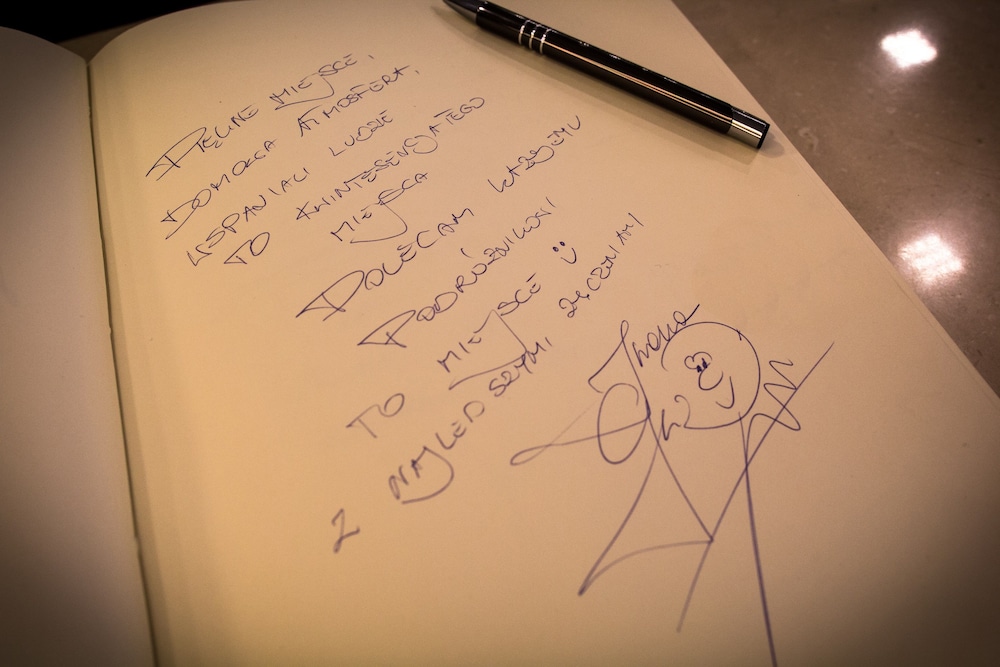 PIĘKNE MIEJSCE,
DOMOWA ATMOSFERA,
WSPANIALI LUDZIE
TO KWINTESENSJA TEGO
MIEJSCA
POLECAM KAŻDEMU
PODRÓŻNIKOWI
TO MIEJSCE :)
Z NAJLEPSZYMI ŻYCZENIAMI
Iwona